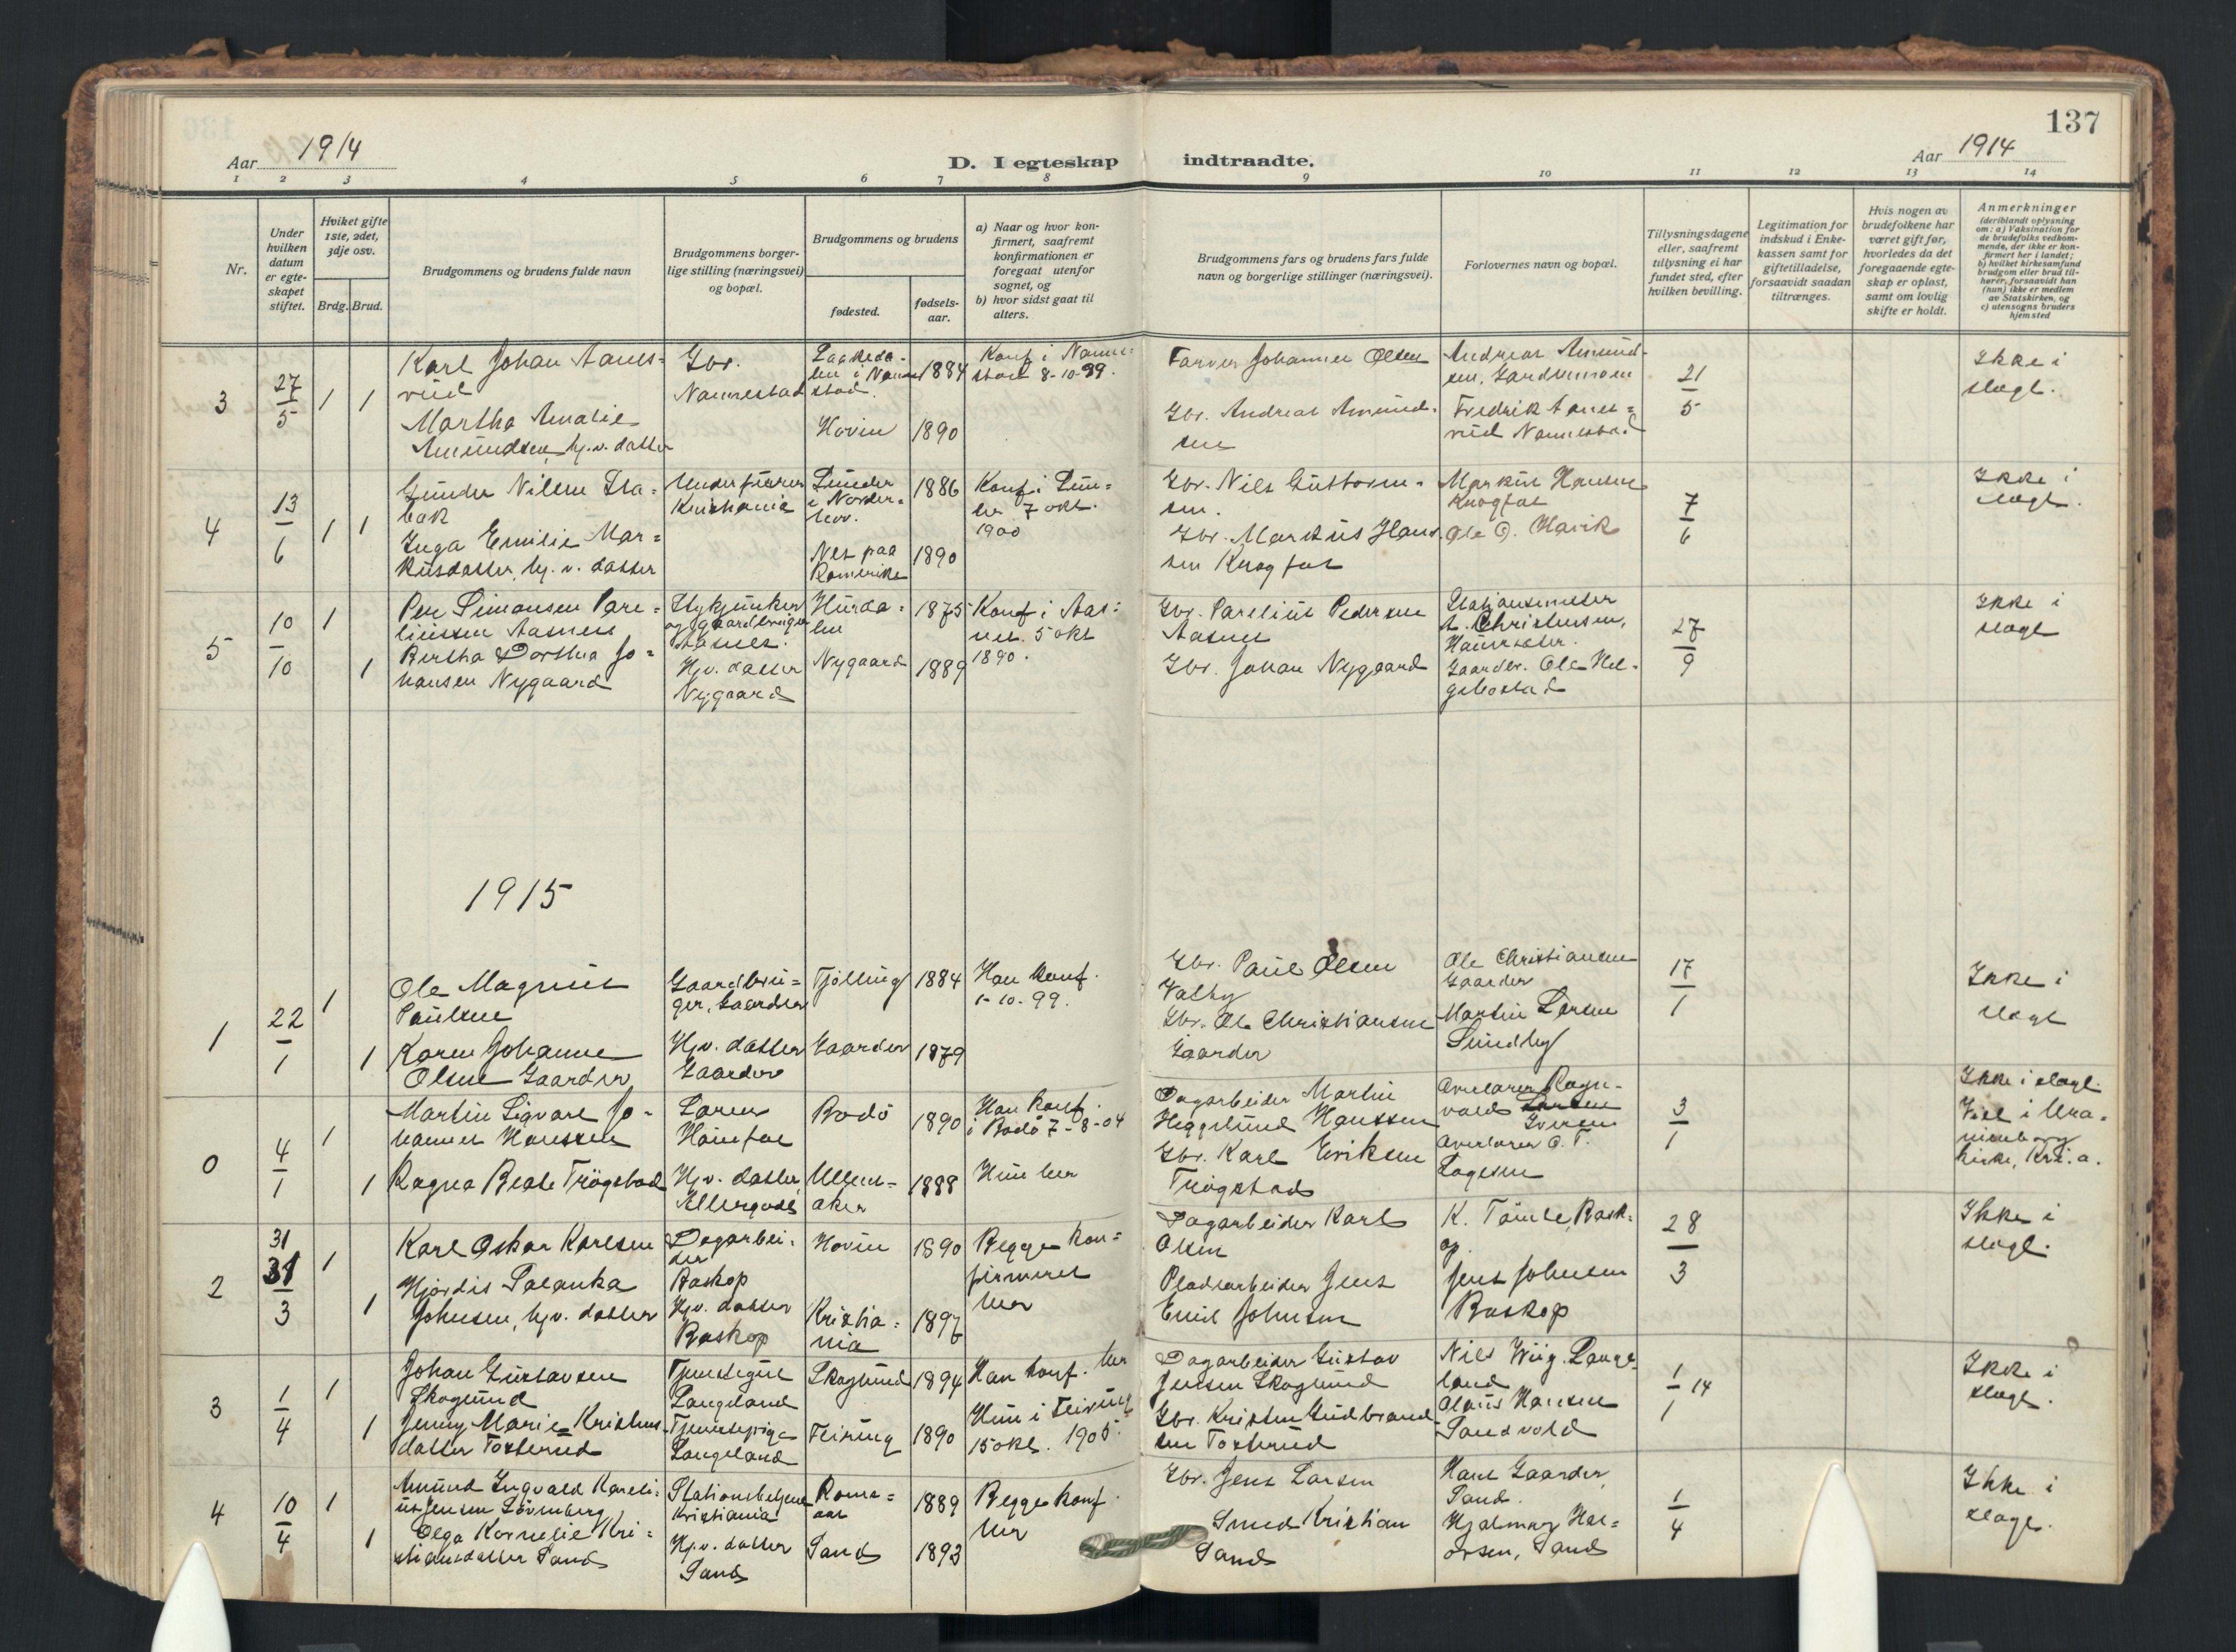 137
Aar 1914
D. I egteskap indtraadte.
Aar 1914
1 2 3 4 5 6 7 8 9 10 11 12 13 14
Nr.
Under
hvilken
datum
er egte-
skapet
stiftet.
Hvilket gifte
1ste, 2det,
3dje osv.
Brdg. Brud.
Brudgommens og brudens fulde navn
Brudgommens borger-
lige stilling (næringsvei)
og bopæl.
Brudgommens og brudens
fødested.
fødsels-
aar.
a) Naar og hvor kon-
firmert, saafremt
konfirmationen er
foregaat utenfor
sognet, og
b) hvor sidst gaat til
alters.
Brudgommens fars og brudens fars fulde
navn og borgerlige stillinger (næringsvei).
Forlovernes navn og bopæl.
Tillysningsdagene
eller, saafremt
tillysning ei har
fundet sted, efter
hvilken bevilling.
Legitimation for
indskud i Enke-
kassen samt for
giftetilladelse,
forsaavidt saadan
tiltrænges.
Hvis nogen av
brudefolkene har
været gift før,
hvorledes da det
foregaaende egte-
skap er opløst,
samt om lovlig
skifte er holdt.
Anmerkninger
(deriblandt oplysning
om: a) Vaksination for
de brudefolks vedkom-
mende, der ikke er kon-
firmert her i landet;
b) hvilket kirkesamfund
brudgom eller brud til-
hører, forsaavidt han
(hun) ikke er medlem
av Statskirken, og
c) utensogns bruders
hjemsted
3
27
5
1 1
Karl Johan Aanes-
rud
Martha Amalie
Amundsen, hj.v. datter
Gbr.
Nannestad
stad.
1884
Hovin 1890
Konf i Nanne-
stad 8-10-99.
Farver Johannes Olsen
Gbr. Andreas Amund-
sen
Andreas Amund-
sen, Gardermoen
Fredrik Aanes=
rud Nannestad
21
5
Ikke i
slegt.
4
13
6
1 1
Gunder Nilsen Sla=
bak
Inga Emilie Mar=
kusdatter, hj. v. datter
Kristiania
Lunder
i Norder=
hov.
1886
Nes paa
Romerike
1890
Konf i Lun=
der 7 okt.
1900
Gbr. Niels Guttorm-
sen.
Gbr. Markus Han-
sen Knogfos
Markus Hansen
Knogfos
Ole O. Havik
7
6
Ikke i
slegt.
5
10
10
1
1
Per Simonsen Pare=
liussen Aasnes
Bertha Dorthea Jo=
hansen Nygaard
og gaardbruger
Aasnes.
Hj.v. datter
Nygaard
Hurda=
len
1875
Nygaard 1889
Konf i Aas=
nes. 5 okt
1890.
Gbr. Parelius Pedersen
Aasnes
Gbr. Johan Nygaard
Stationsmester
A. Christensen,
Hauerseter.
Gaardbr. Ole Hel-
gebostad
27
9
Ikke i
slegt
1915
1
22
1
1
1
Ole Magnus
Paulsen
Karen Johanne
Olsen Gaarder
Gaardbru=
ger, Gaarder
Hj.v. datter
Gaarder
Tjølling 1884
Gaarder 1879
Han konf.
1-10-99.
Gbr. Paul Olsen
Valby
Gbr. Ole Christiansen
Gaarder
Ole Christiansen
Gaarder
Martin Larsen
Sundby
17
1
Ikke i
slegt
0
4
1
1
1
Martin Sigvart Jo-
hannes Hanssen
Ragna Beate Trøgstad
Hj.v. datter
Bodø 1890
Ullens-
aker
1888
Han konf.
i Bodø 7-8-04
Hun her
Dagarbeider Martin
Heggelund Hanssen
Gbr. Karl Eriksen
Trøgstad
Ragn-
vald Larsen
Iversen
O. T.
Lagesen
3
1
Ikke i slegt.
Viet i Ura-
nienborg
kirke, Kr.a.
2
31
31
3
1
1
Karl Oskar Karlsen
Hjørdis Palanka
Johnsen, hj.v. datter
Dagarbei-
der
Baskop
Hj.v. datter
Baskop
Hovin 1890
Kristia=
nia
1896
Begge kon=
firmeret
her
Dagarbeider Karl
Olsen
Pladsarbeider Jens
Emil Johnsen
K. Tømte Bask-
op.
Jens Johnsen
Baskop
28
3
Ikke i
slegt.
3
1
4
1
1
Johan Gustavsen
Skoglund
Jenny Marie Kristens-
datter Tosterud
Tjenestegut
Langeland
Tjenestepige
Langeland
Skoglund 1894
Feiring 1890
Han konf. her
Hun i Feiring
15 okt. 1905.
Dagarbeider Gustav
Jensen Skoglund
Gbr. Kristen Gudbrand-
sen Tosterud
Nils Wiig. Lange-
land
Olaus Hansen
Sandvold
1 14
1
Ikke i
slegt.
4
10
4
1
1
Amund Ingvald Kareli-
us Jensen Løvenberg
Olga Kornelie Kri=
stiansdatter Sand
Stationsbetjent
Kristiania
Hj.v. datter
Sand
Roms=
aas
1889
Sand 1893
Begge konf.
her
Gbr. Jens Larsen
Smed Kristian
Sand
Hans Gaarder,
Sand.
Hjalmar Hal=
orsen, Sand
1
4
Ikke i
slegt.